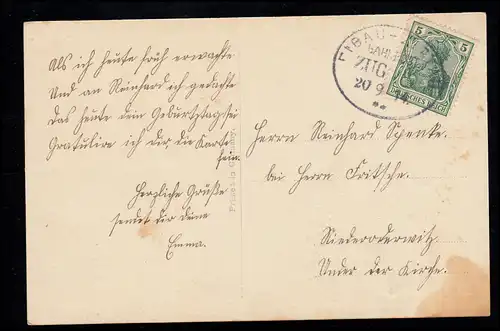 Als ich heute früh erwachte
Und an Reinhard ich gedachte
Das heute dein Geburtstag sei
Gratulire ich dir die Karte
fein.
Herzliche Grüße
sendet dir deine
Emma.
EIBAU-
BAHNPOST
ZUG
20 9 14
5 5
DEUTSCHES REICH
Herrn Reinhard Spenke.
bei Herrn Fritsche.
Niederoderwitz
Unter der Kirche.